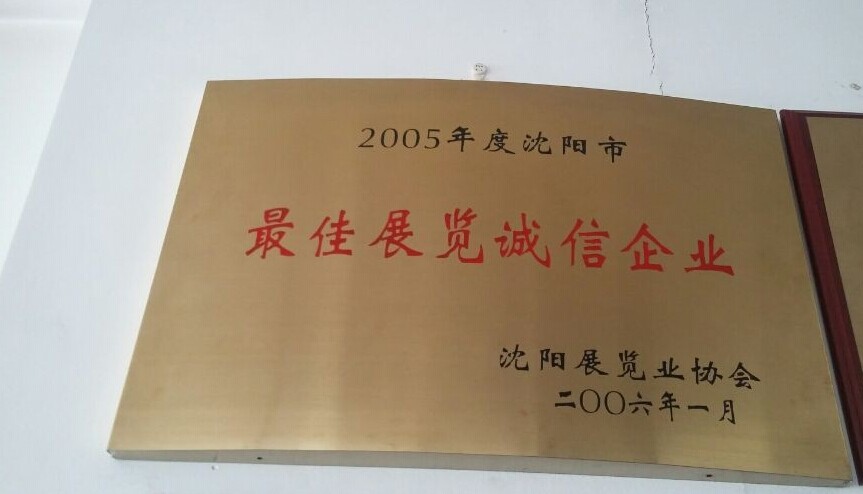 2005年度沈阳市
最佳展览诚信企业
沈阳展览业协会
二〇〇六年一月